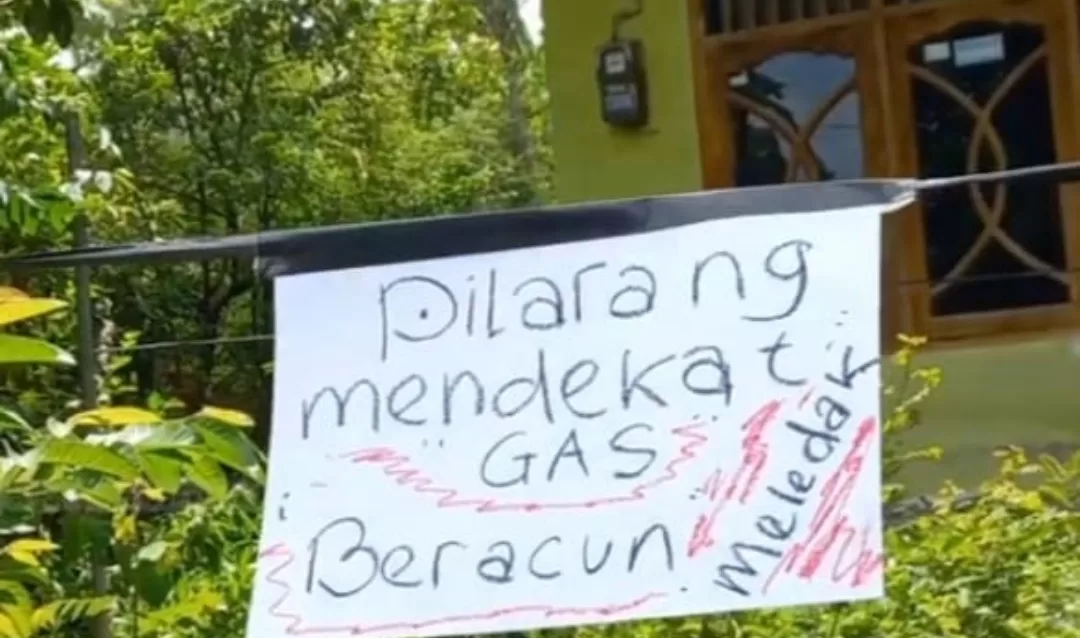 Dilarang
mendekat
GAS
Beracun
Meledak